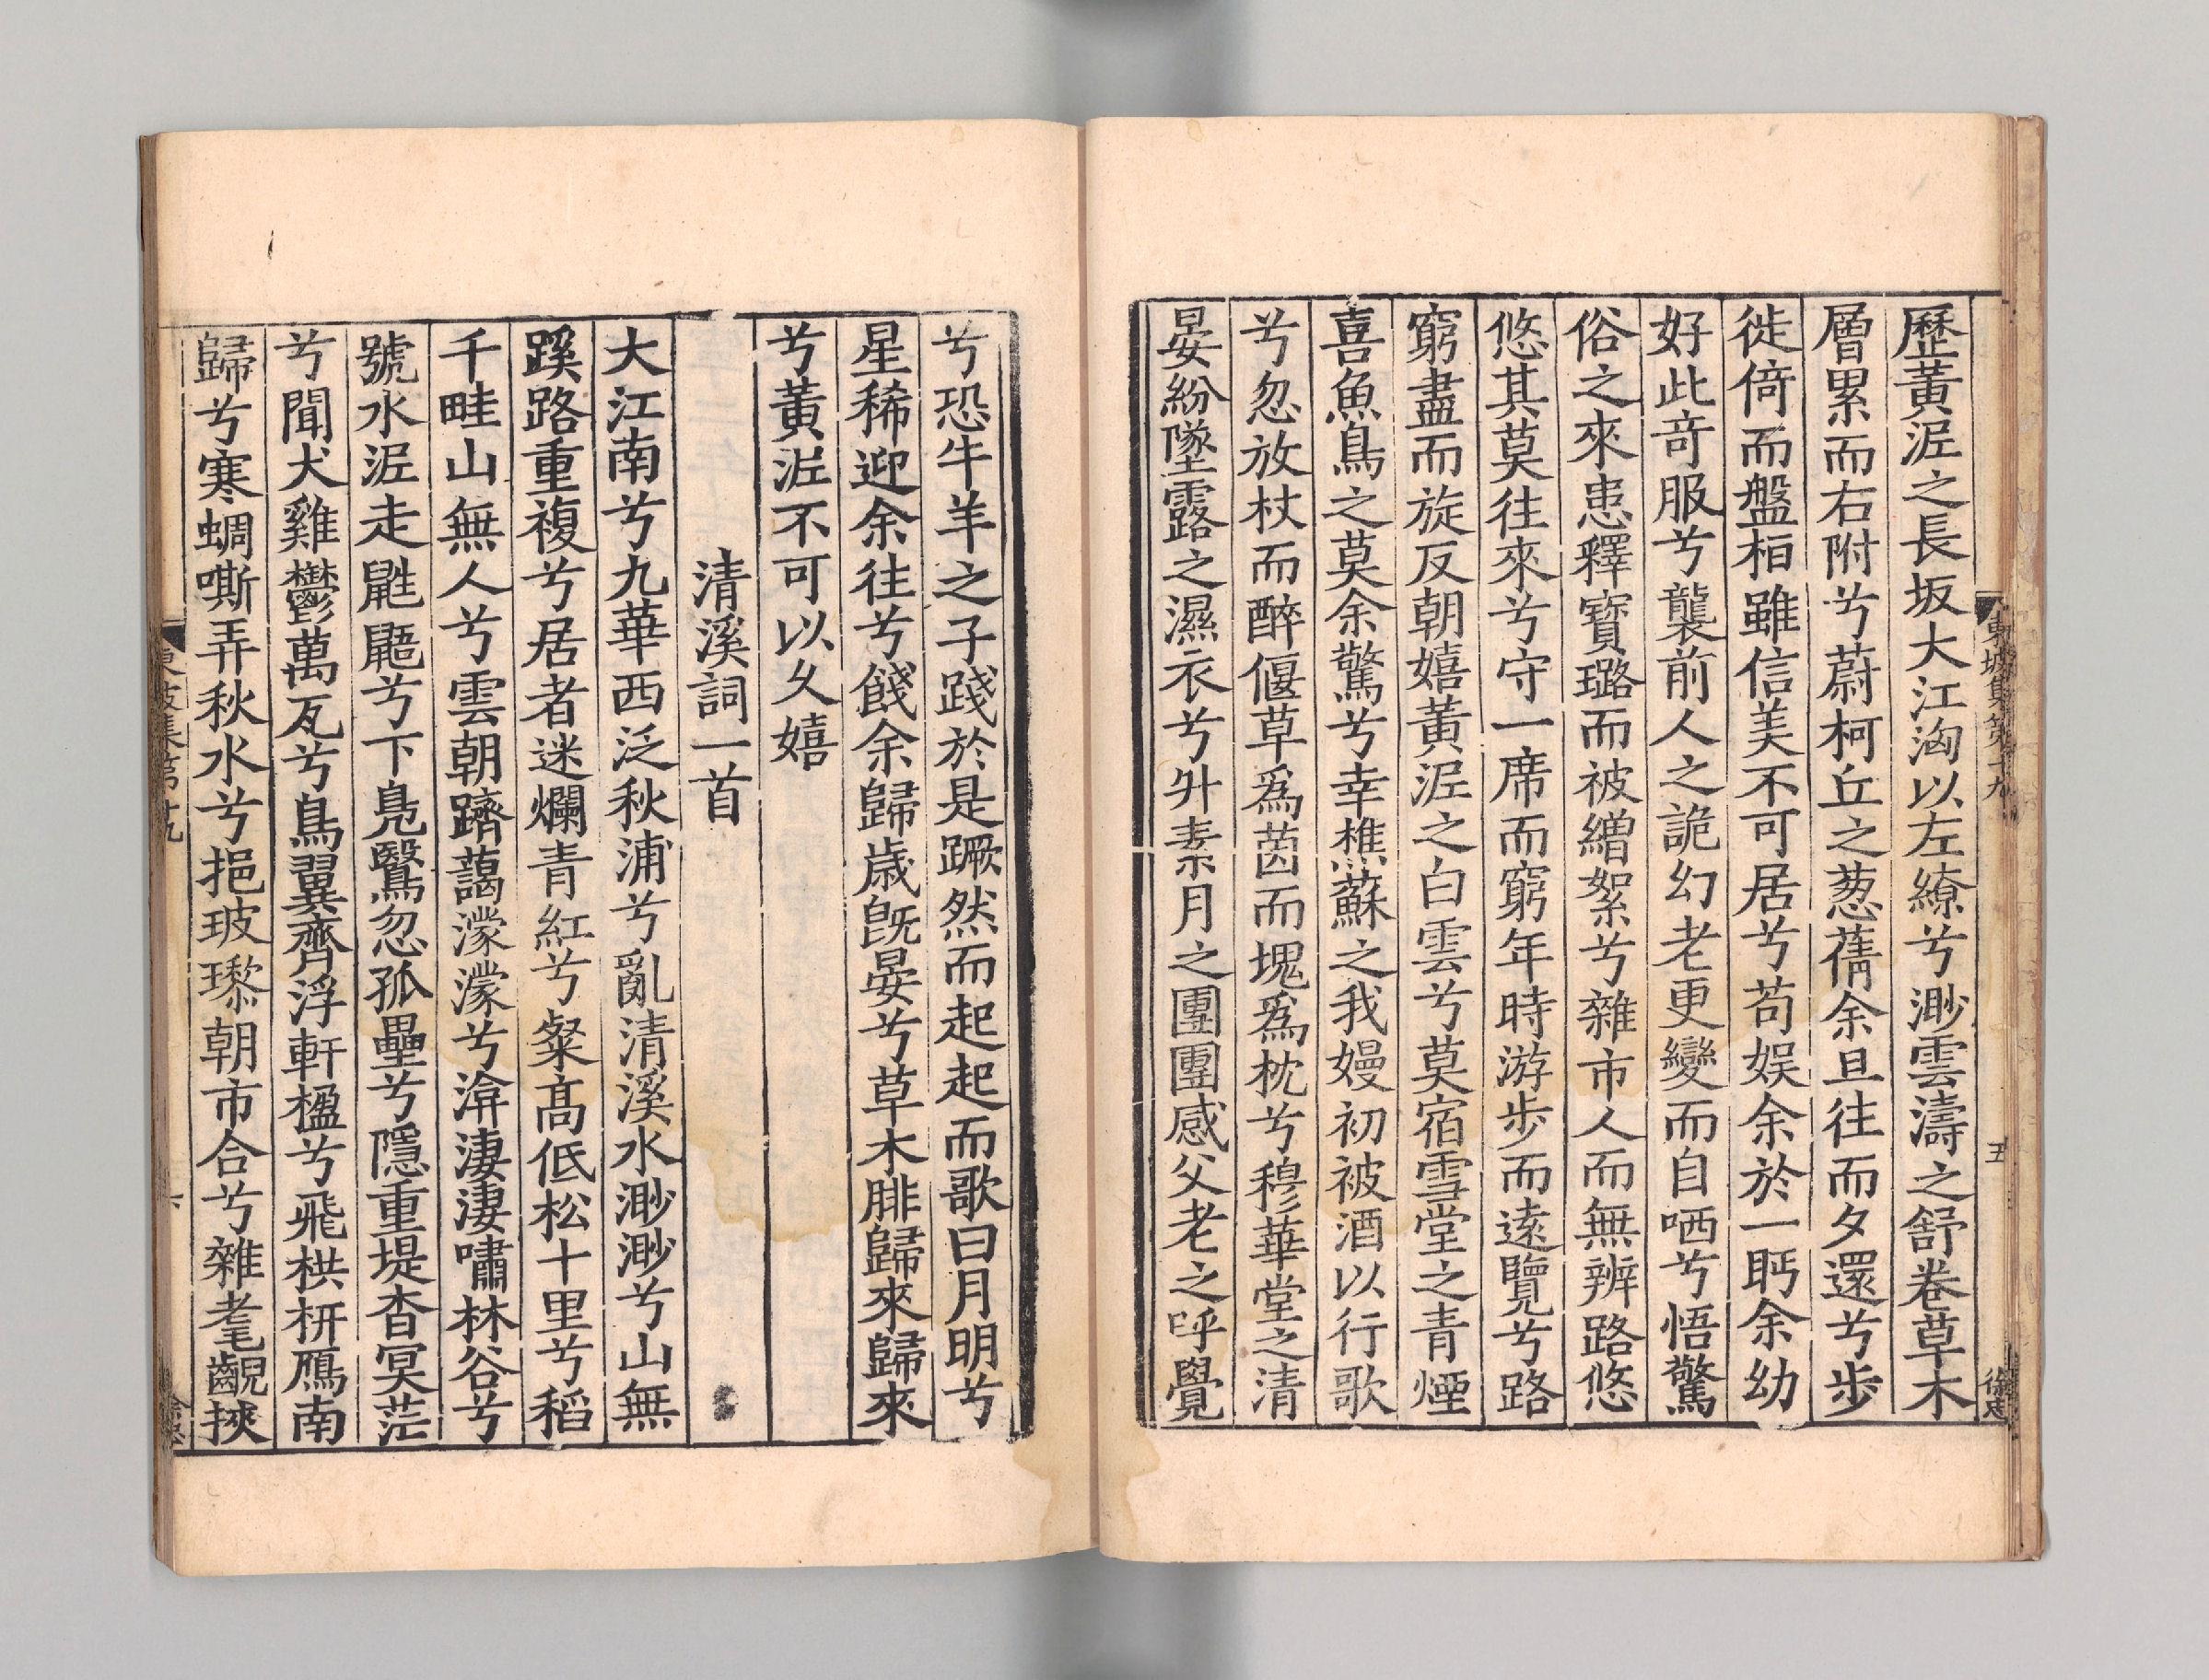 東坡集第十九
五
徐忠
歷黃泥之長坂大江洶以左繚兮渺雲濤之舒卷草木
層累而右附兮蔚柯丘之葱蒨余旦往而夕還兮步
徙倚而盤桓雖信美不可居兮苟娛余於一眄余幼
好此奇服兮襲前人之詭幻老更變而自哂兮悟驚
俗之來患釋寶璐而被繒絮兮雜市人而無辨路悠
悠其莫往來兮守一席而窮年時游步而遠覽兮路
窮盡而旋反朝嬉黃泥之白雲兮莫宿雪堂之青煙
喜魚鳥之莫余驚兮幸樵蘇之我嫚初被酒以行歌
兮忽放杖而醉偃草爲茵而塊爲枕兮穆華堂之清
晏紛墜露之濕衣兮升素月之團團感父老之呼覺
兮恐牛羊之予踐於是蹶然而起起而歌曰月明兮
星稀迎余往兮餞余歸歲既晏兮草木腓歸來歸來
兮黃泥不可以久嬉
清溪詞一首
大江南兮九華西泛秋浦兮亂清溪水渺渺兮山無
蹊路重複兮居者迷爛青紅兮粲高低松十里兮稻
千畦山無人兮雲朝隮藹濛濛兮渰淒淒嘯林谷兮
號水泥走鼪鼯兮下鳧鷖忽孤壘兮隱重堤杳冥茫
兮聞犬雞鬱萬瓦兮鳥翼齊浮軒楹兮飛栱枅鴈南
歸兮寒蜩嘶弄秋水兮挹玻瓈朝市合兮雜耄齯挾
東坡集第十九